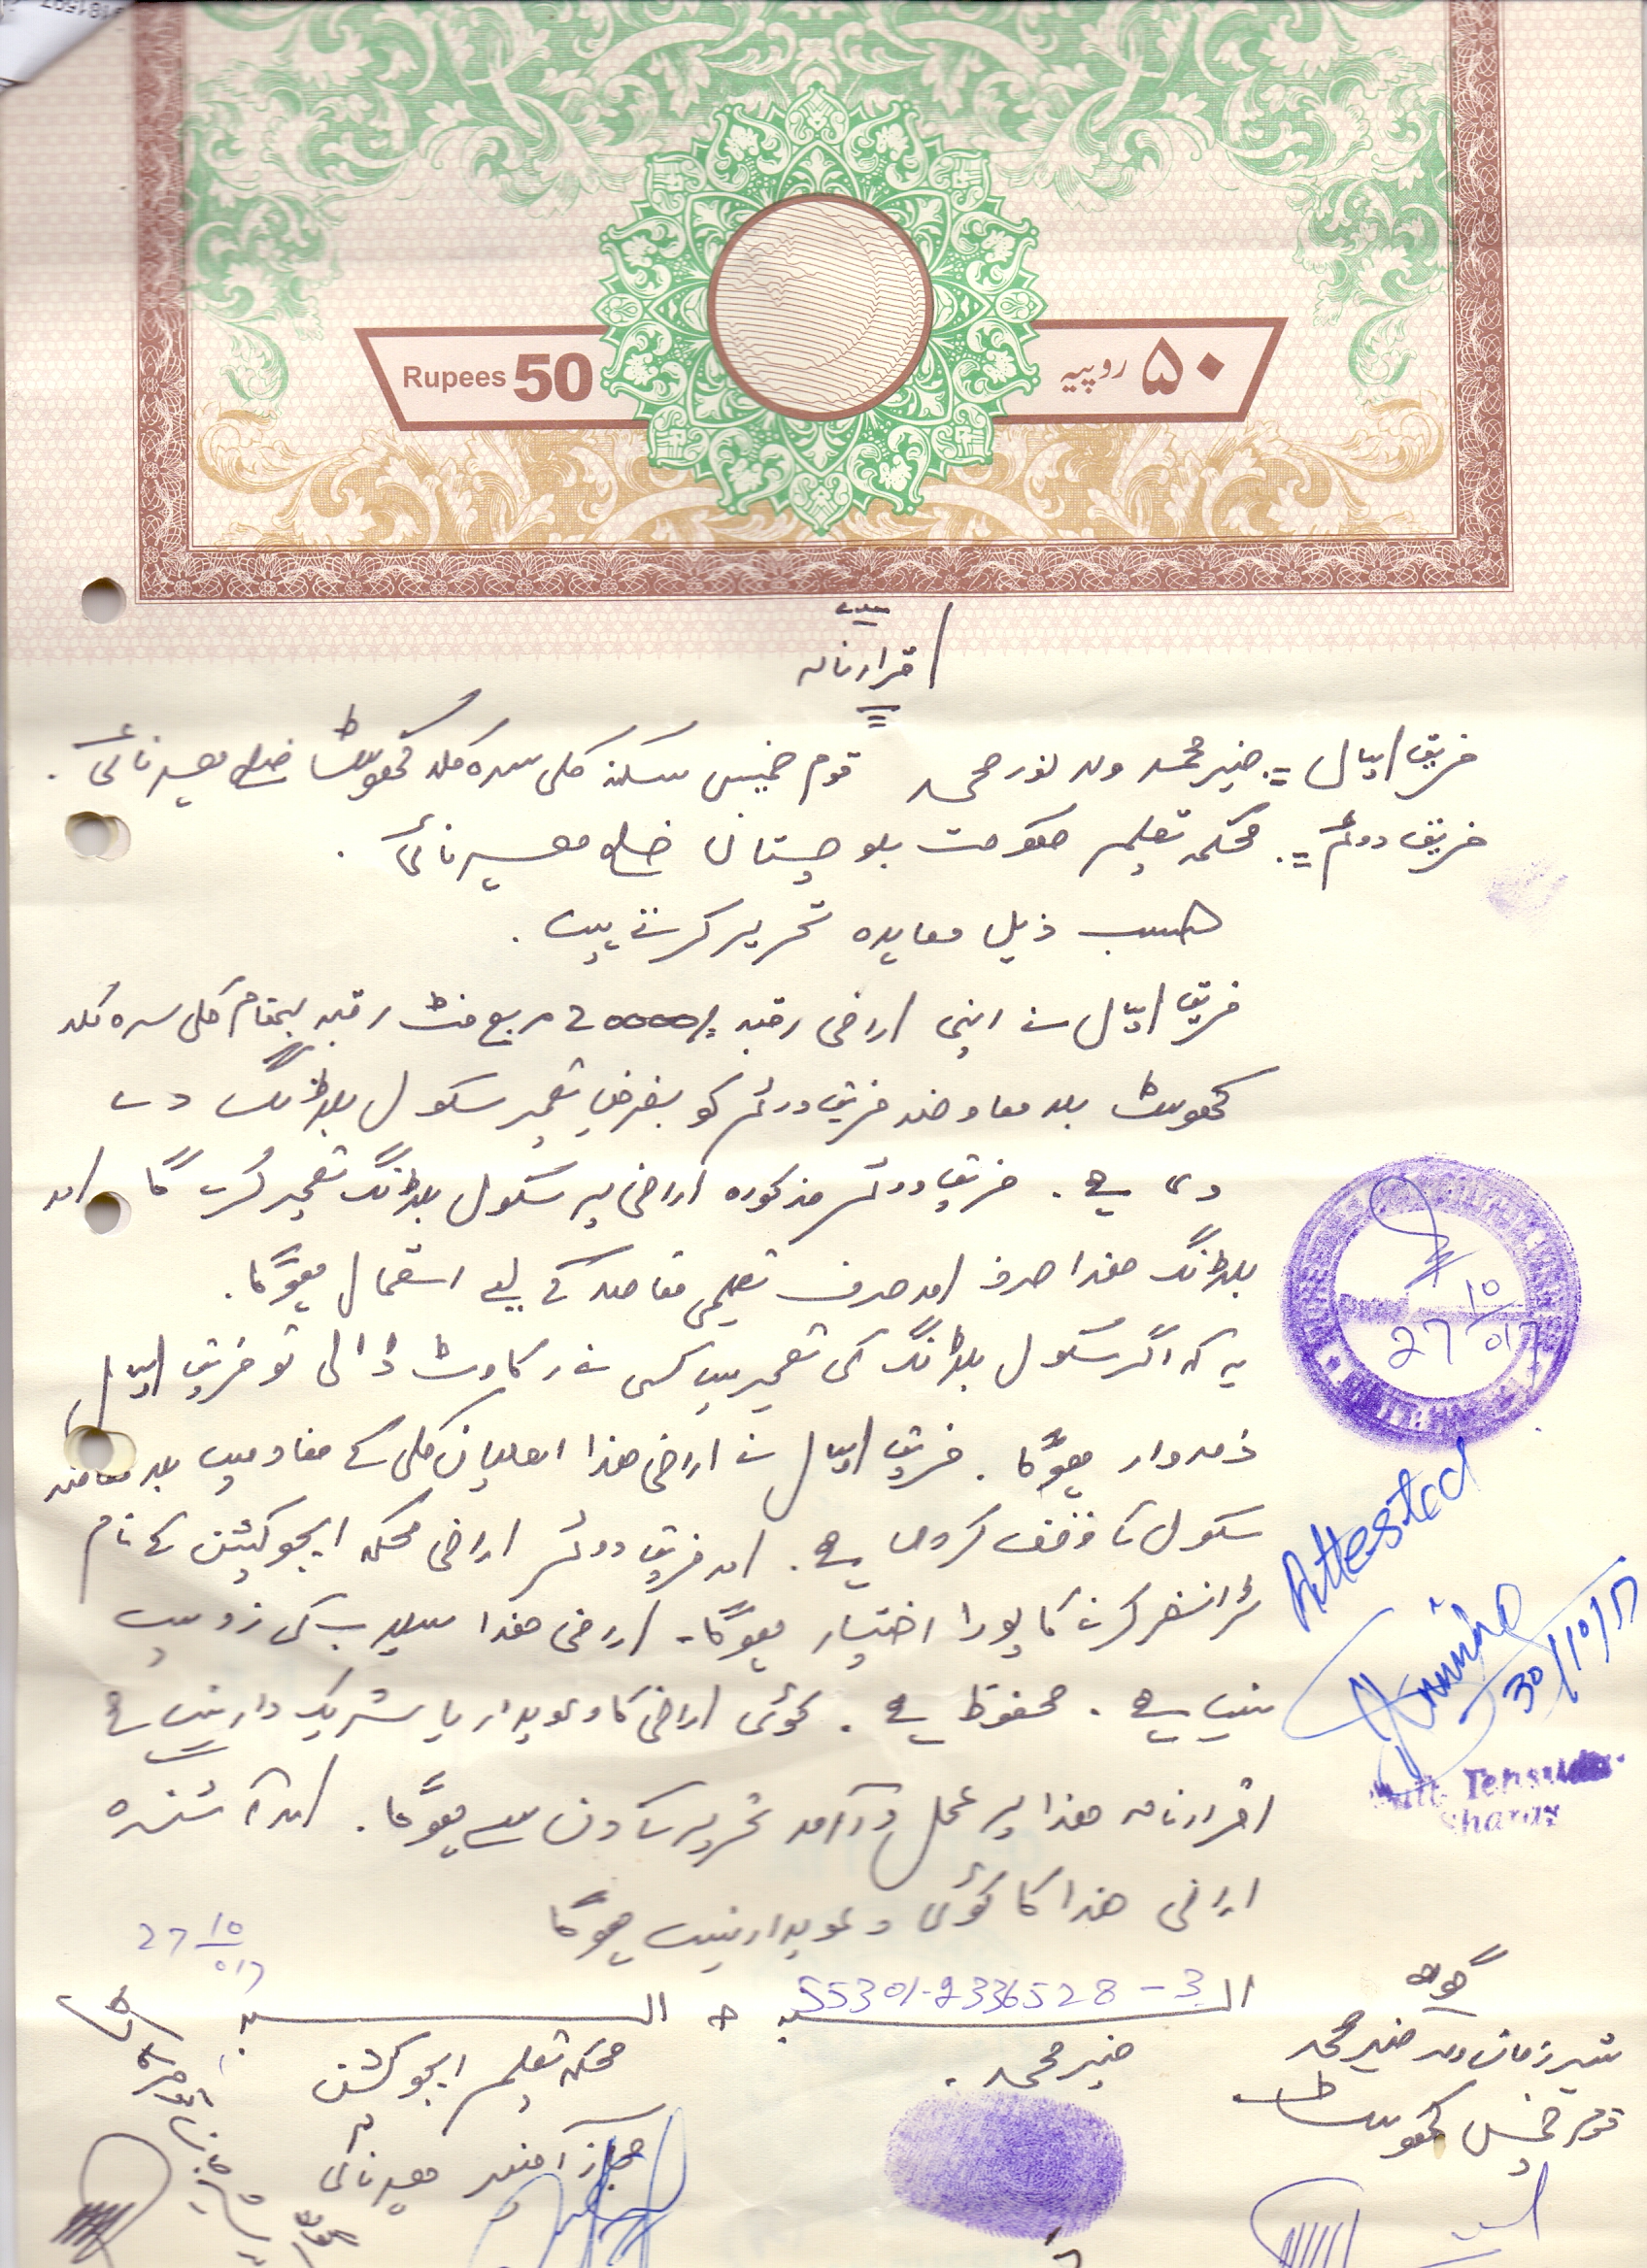 Rupees 50
۵۰ روپیہ
اقرارنامہ
فریق اول =. خیر محمد ولد نور محمد قوم خمیس سکنہ کلی سرہ کلہ کھوسٹ ضلع ہرنائی.
فریق دوئم =. محکمہ تعلیم حکومت بلوچستان ضلع ہرنائی.
حسب ذیل معاہدہ تحریر کرتے ہیں.
فریق اول نے اپنی اراضی رقبہ 20000/ مربع فٹ رقبہ بمقام کلی سرہ کلہ
کھوسٹ بلا معاوضہ فریق دوئم کو بغرض تعمیر سکول بلڈنگ دے
دی ہے. فریق دوئم مذکورہ اراضی پر سکول بلڈنگ تعمیر کرے گا اور
بلڈنگ ھذا صرف اور صرف تعلیمی مقاصد کے لیے استعمال ہوگا.
یہ کہ اگر سکول بلڈنگ کی تعمیر میں کسی نے رکاوٹ ڈالی تو فریق اول
ذمہ دار ہوگا. فریق اول نے اراضی ھذا اہلیان کلی کے مفاد میں بلا معاوضہ
سکول کا وقف کر دی ہے. اور فریق دوئم اراضی محکمہ ایجوکیشن کے نام
ٹرانسفر کرنے کا پورا اختیار ہوگا۔ اراضی ھذا سیلاب کی زد میں
نہیں ہے. محفوظ ہے. کوئی اراضی کا دعویدار یا شریک دار نہیں ہے
اقرارنامہ ھذا پر عمل درآمد تحریر کے دن سے ہوگا. اور آئندہ
اراضی ھذا کا کوئی دعویدار نہیں ہوگا
27 10/017
Attested
30/10/17
27 10/017
گواہ
شیر زمان ولد خیر محمد
قوم خمیس کھوسٹ
العبد 55301-2336528-3
خیر محمد.
+ العبد
محکمہ تعلیم ایجوکیشن
مجاز آفیسر ہرنائی